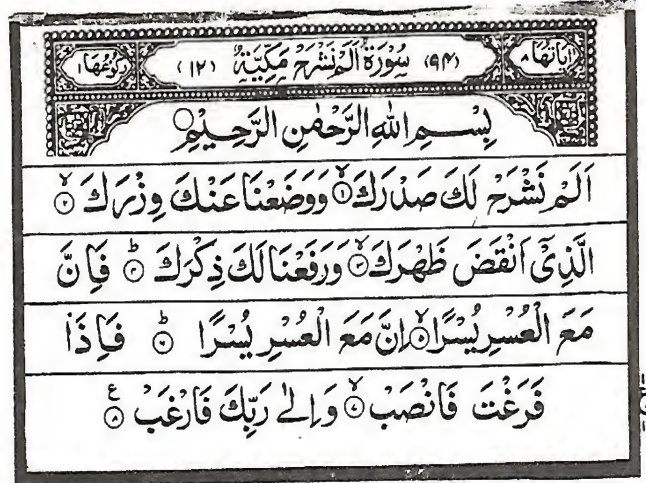 اٰیَاتُهَا ۸ (۹۴) سُوْرَةُ اَلَمْ نَشْرَحْ مَكِّيَّةٌ (۱۲) رُكُوْعُهَا ۱
بِسْــمِ اللهِ الرَّحْمٰنِ الرَّحِيْمِ
اَلَمْ نَشْرَحْ لَكَ صَدْرَكَ ۙ﴿۱﴾ وَوَضَعْنَا عَنْكَ وِزْرَكَ ۙ﴿۲﴾
الَّذِیْۤ اَنْقَضَ ظَهْرَكَ ۙ﴿۳﴾ وَرَفَعْنَا لَكَ ذِكْرَكَ ؕ﴿۴﴾ فَاِنَّ
مَعَ الْعُسْرِ يُسْرًا ۙ﴿۵﴾ اِنَّ مَعَ الْعُسْرِ يُسْرًا ؕ﴿۶﴾ فَاِذَا
فَرَغْتَ فَانْصَبْ ۙ﴿۷﴾ وَاِلٰی رَبِّكَ فَارْغَبْ ﴿۸﴾ ع